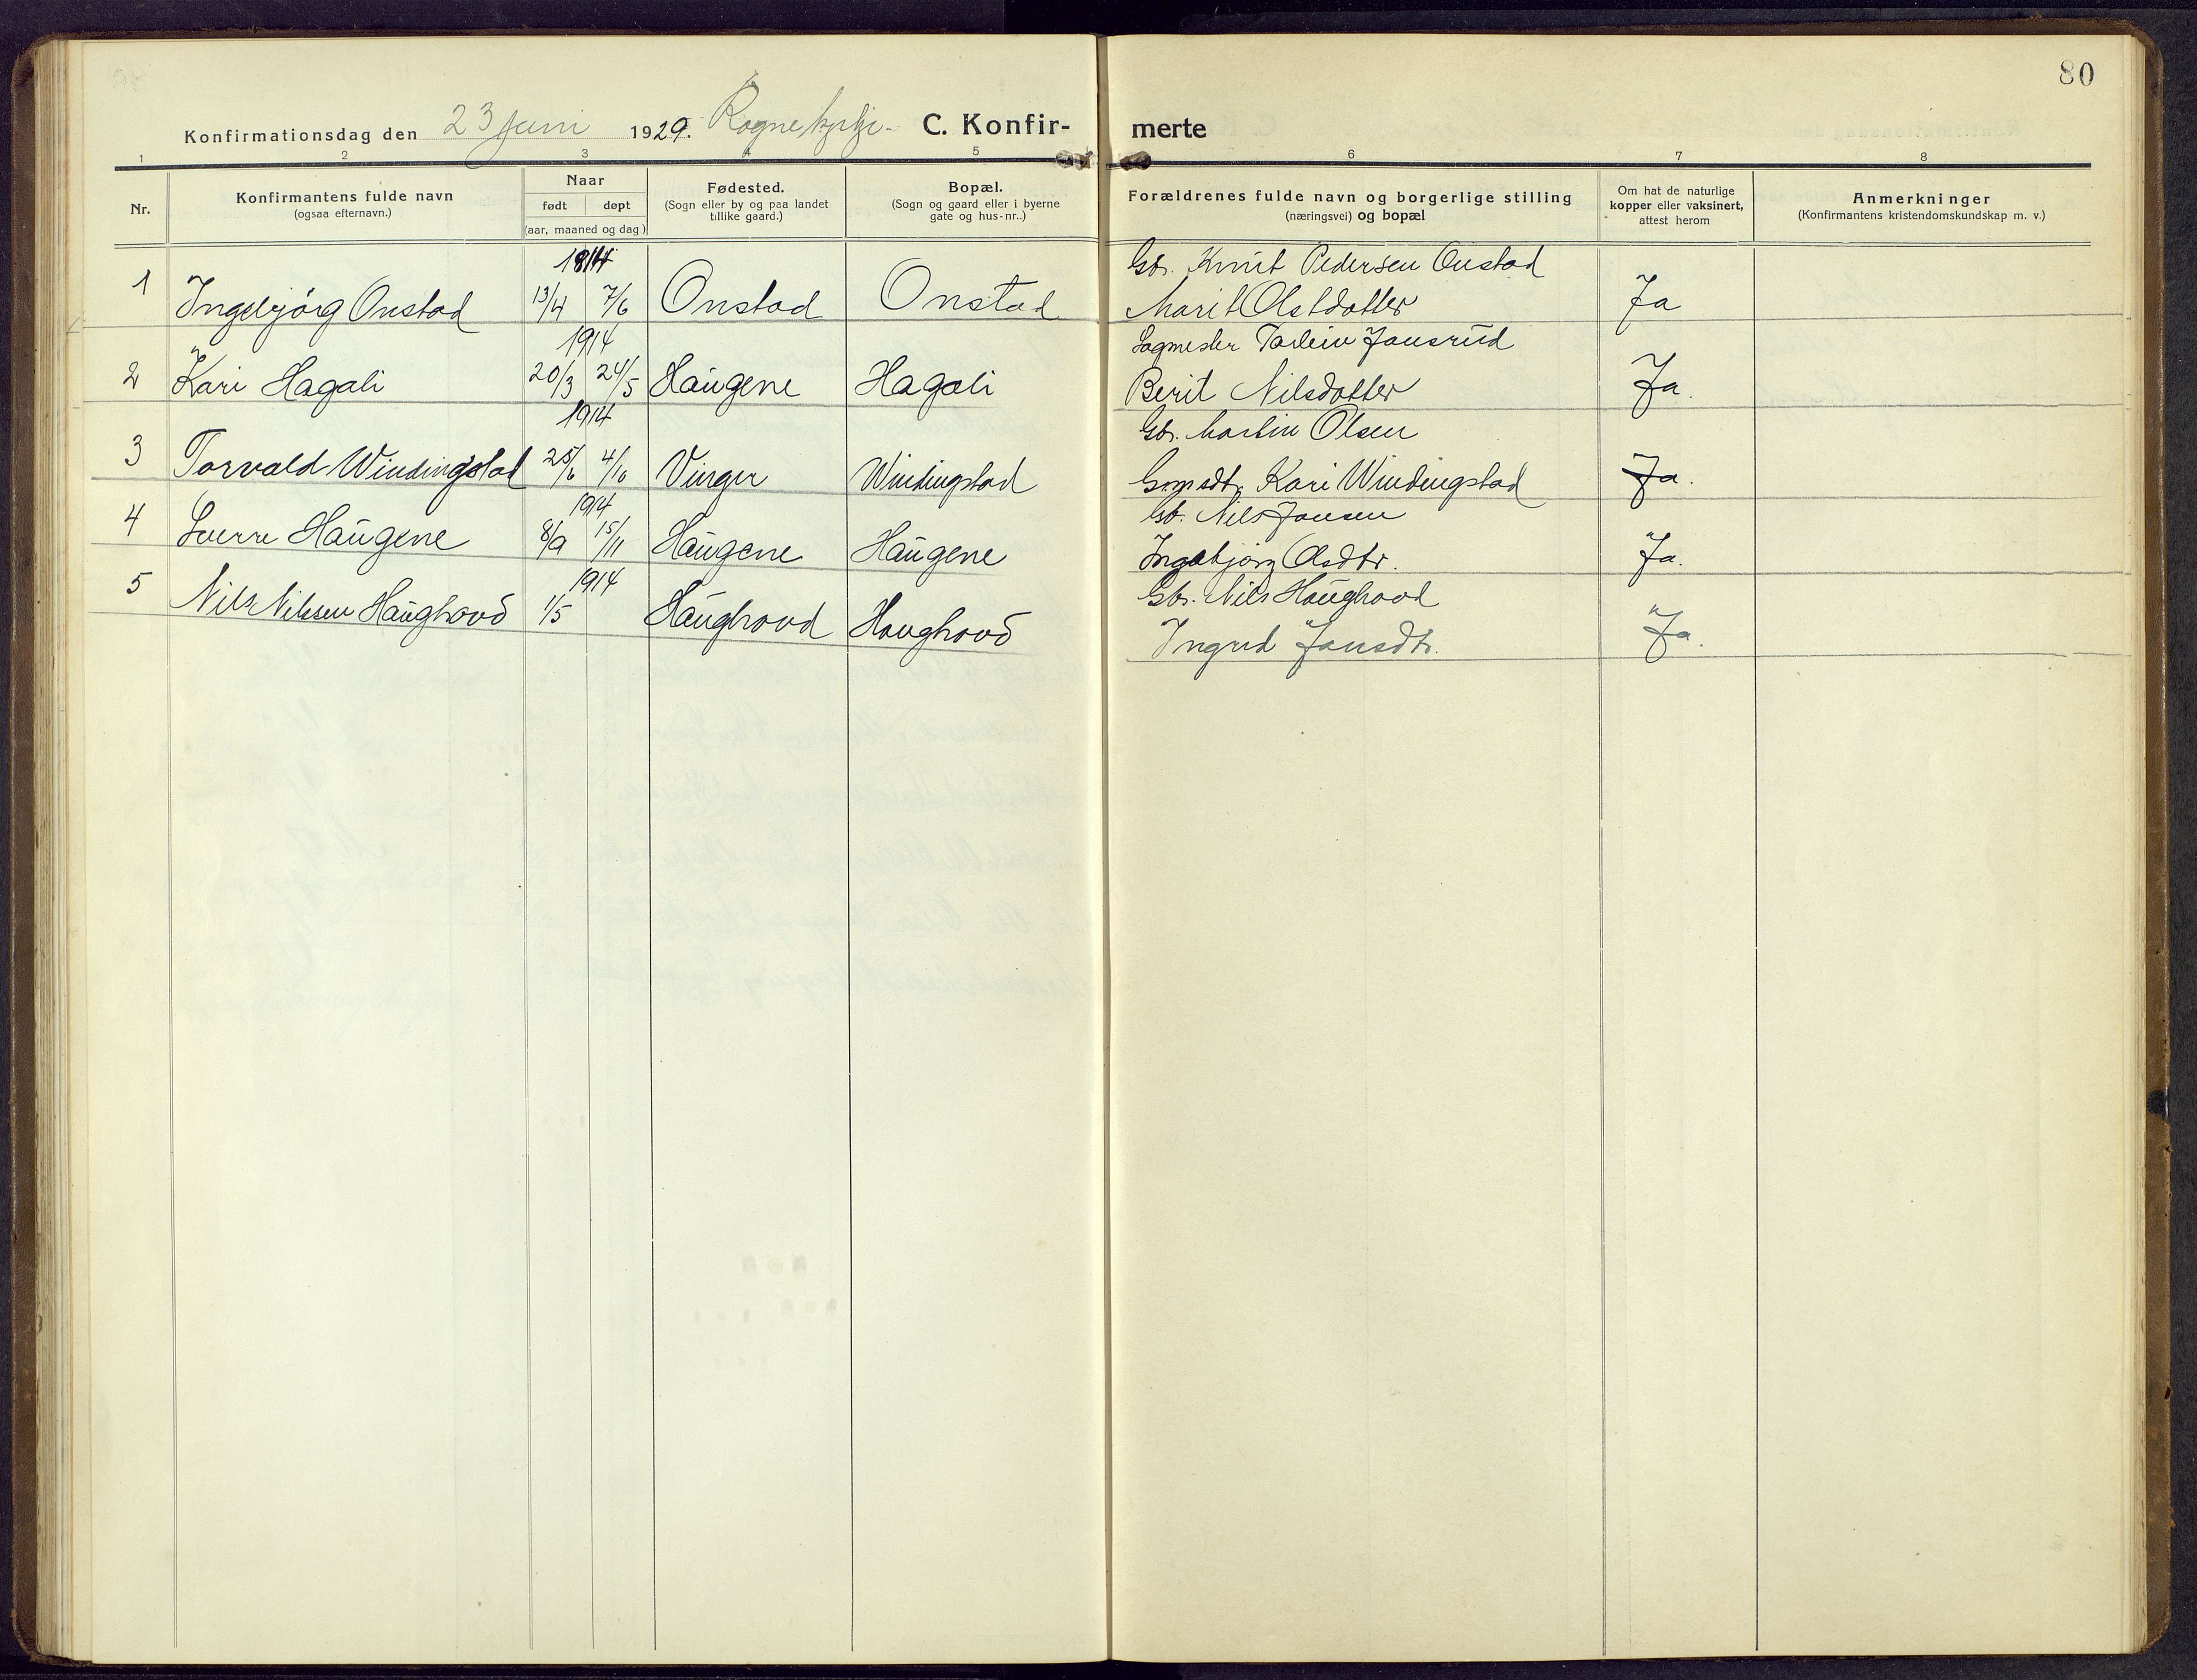 80
Konfirmationsdag den 23 juni 1929. Rognekyrkje- C. Konfir-merte
1 2 3 4 5 6 7 8
Nr.
Konfirmantens fulde navn
(ogsaa efternavn.)
Naar
født døpt
(aar, maaned og dag)
Fødested.
(Sogn eller by og paa landet
tillike gaard.)
Bopæl.
(Sogn og gaard eller i byerne
gate og hus-nr..)
Forældrenes fulde navn og borgerlige stilling
(næringsvei) og bopæl
Om hat de naturlige
kopper eller vaksinert,
attest herom
Anmerkninger
(Konfirmantens kristendomskundskap m. v.)
1914 Gbr. Knut Pedersen Onstad
1 Ingebjörg Onstad 13/4 7/6 Onstad Onstad Marit Olsdotter Ja
1914 Sagmester Torlein Jonsrud
2 Kari Hagali 20/3 24/5 Haugene Hagali Berit Nilsdotter Ja.
1914 Gbr. Martin Olsen
3 Torvald Windingstad 25/6 4/10 Vinger Windingstad Kari Windingstad Ja.
1914 Gb. Nils Jonsen
4 Sverre Haugene 8/9 15/11 Haugene Haugene Ingebjörg Olsdtr. Ja.
1914 Gbr. Nils Haughovd
5 Nils Nilssen Haughovd 1/5 Haughovd Haughovd Ingrid Jonsdtr. Ja.